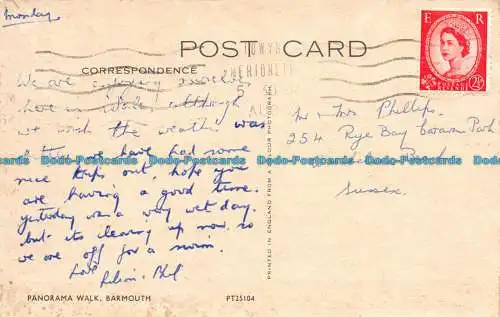 Monday
POST CARD
CORRESPONDENCE
TOWYN
MERIONETH
E R
2½D
We are enjoying
here in Wales although
we wish the weather was
better. We have had some
nice trips out, hope you
are having a good time.
yesterday was a very wet day.
but its clearing up now, so
we are off for a swim.
Love
Phil
Mr & Mrs Phillips.
254 Rye Bay Caravan Park
Sussex.
PRINTED IN ENGLAND FROM A COLOUR PHOTOGRAPH
Dodo-Postcards Dodo-Postcards Dodo-Postcards Dodo-Postcards
PANORAMA WALK, BARMOUTH
PT25104